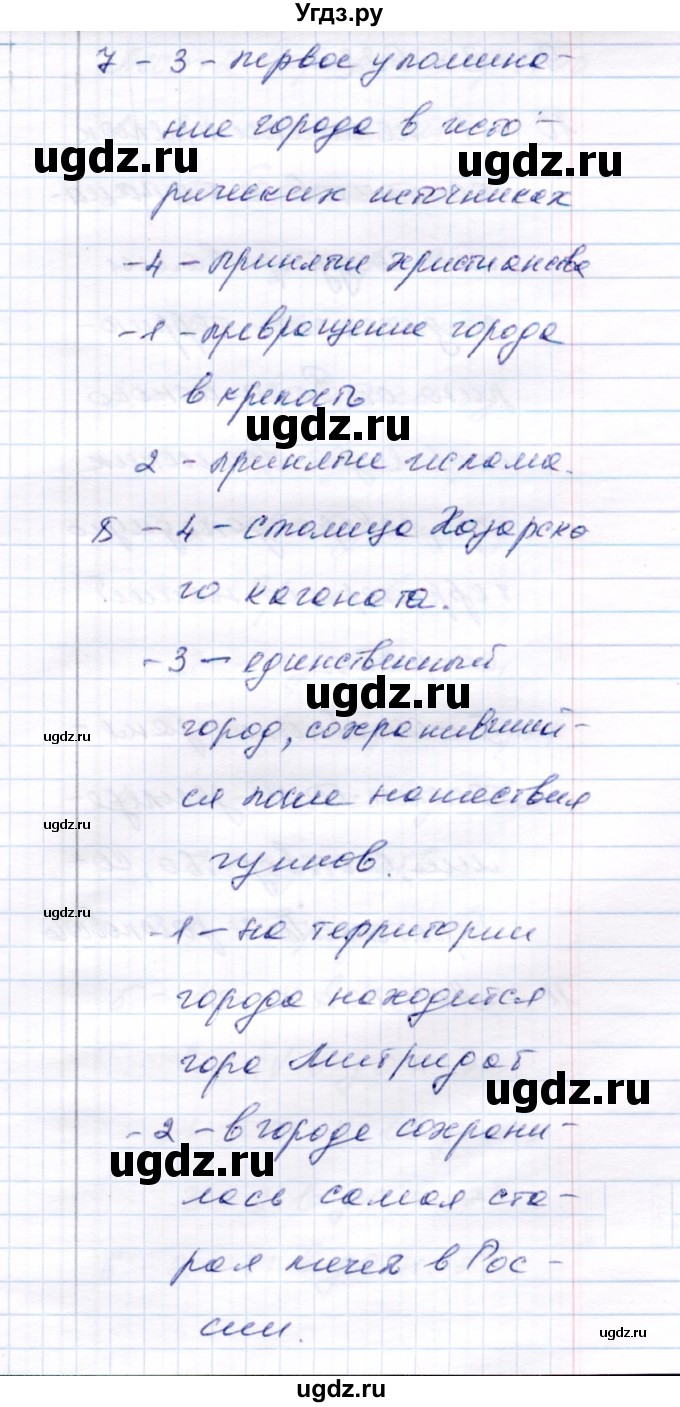 Угдз.ру
7 - 3 - первое упомина-
ние города в исто-
ugdz.ru ugdz.ru
рических источниках
- 4 - принятие христианства
- 1 - превращение города
в крепость
ugdz.ru
2 - принятие ислама.
8 - 4 - столица Хазарско
го каганата.
- 3 - единственный
ugdz.ru
ugdz.ru город, сохранивший-
ся после нашествия
ugdz.ru
гуннов.
ugdz.ru
- 1 - на территории
города находится
гора Митридат
ugdz.ru
- 2 - в городе сохрани-
ugdz.ru
лась самая ста-
рая мечеть в Рос-
сии.
ugdz.ru
ugdz.ru